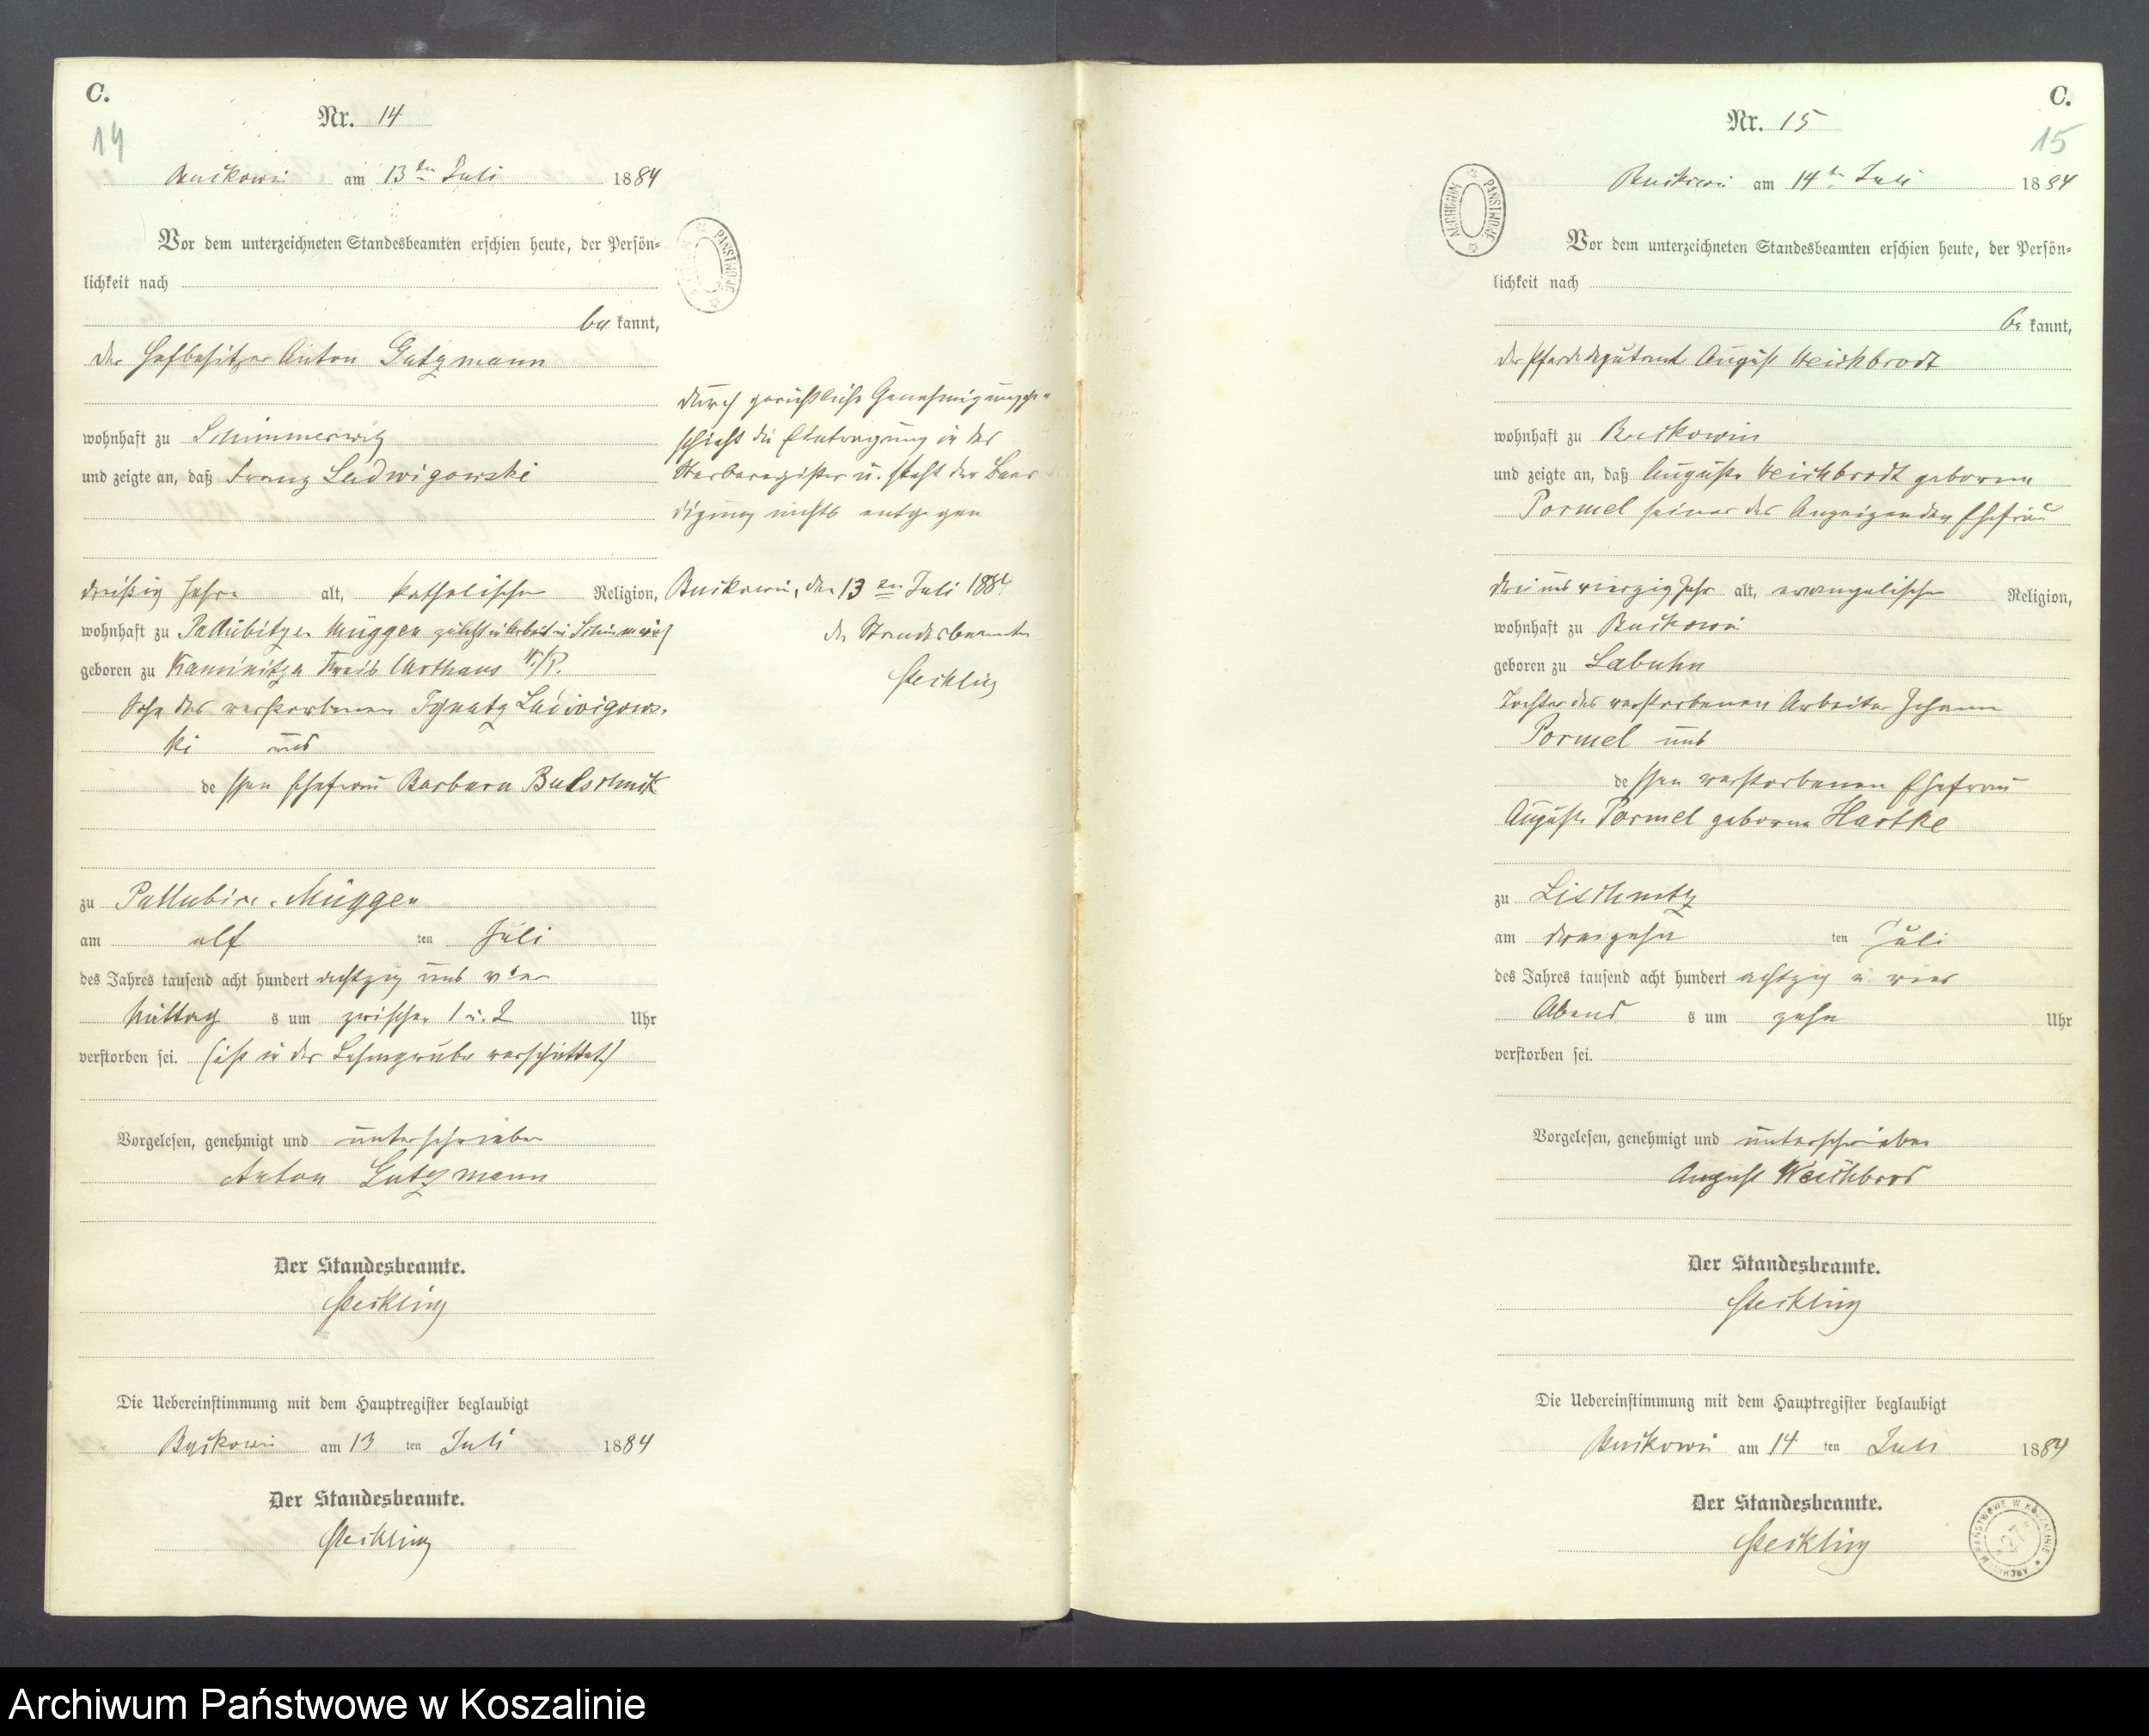 C.
14
Nr. 14
Buckowin am 13ten Juli 1884
Vor dem unterzeichneten Standesbeamten erschien heute, der Persön-
lichkeit nach
be kannt,
der Hofbesitzer Anton Gutzmann
wohnhaft zu Schimmerwitz
und zeigte an, daß Franz Ludwigowski
dreißig Jahre alt, katholischer Religion,
wohnhaft zu Muggen zuletzt in Arbeit in
geboren zu Kaminitza Kreis Carthaus W/P.
Sohn des verstorbenen Ignatz Ludwigows-
ki und
dessen Ehefrau Barbara
zu Muggen
am elf ten Juli
des Jahres tausend acht hundert achtzig und vier
Mittag s um zwischen 1 u. 2 Uhr
verstorben sei. (ist in der Lehmgrube verschüttet)
Vorgelesen, genehmigt und unterschrieben
Anton Gutzmann
Der Standesbeamte.
Steckling
Die Uebereinstimmung mit dem Hauptregister beglaubigt
Buckowin am 13 ten Juli 1884
Der Standesbeamte.
Steckling
PAŃSTWOWE
durch gerichtliche Genehmigung ge-
schieht die Eintragung in das
Sterberegister u. steht der Beer-
digung nichts entgegen
Buckowin, den 13ten Juli 1884
der Standesbeamte
Steckling
C.
15
Nr. 15
ARCHIWUM PAŃSTWOWE
Buckowin am 14ten Juli 1884
Vor dem unterzeichneten Standesbeamten erschien heute, der Persön-
lichkeit nach
be kannt,
der Pferdedeputant August Weichbrodt
wohnhaft zu Buckowin
und zeigte an, daß Auguste Weichbrodt geborne
Pormel seiner des Anzeigenden Ehefrau
drei und vierzig Jahr alt, evangelischer Religion,
wohnhaft zu Buckowin
geboren zu Labuhn
Tochter des verstorbenen Arbeiter Johann
Pormel und
dessen verstorbenen Ehefrau
Auguste Pormel geborne Hartke
zu Lischnitz
am dreizehn ten Juli
des Jahres tausend acht hundert achtzig u vier
Abend s um zehn Uhr
verstorben sei.
Vorgelesen, genehmigt und unterschrieben
August Weichbrod
Der Standesbeamte.
Steckling
Die Uebereinstimmung mit dem Hauptregister beglaubigt
Buckowin am 14 ten Juli 1884
Der Standesbeamte.
Steckling
ARCHIWUM PAŃSTWOWE W KOSZALINIE
27
Archiwum Państwowe w Koszalinie